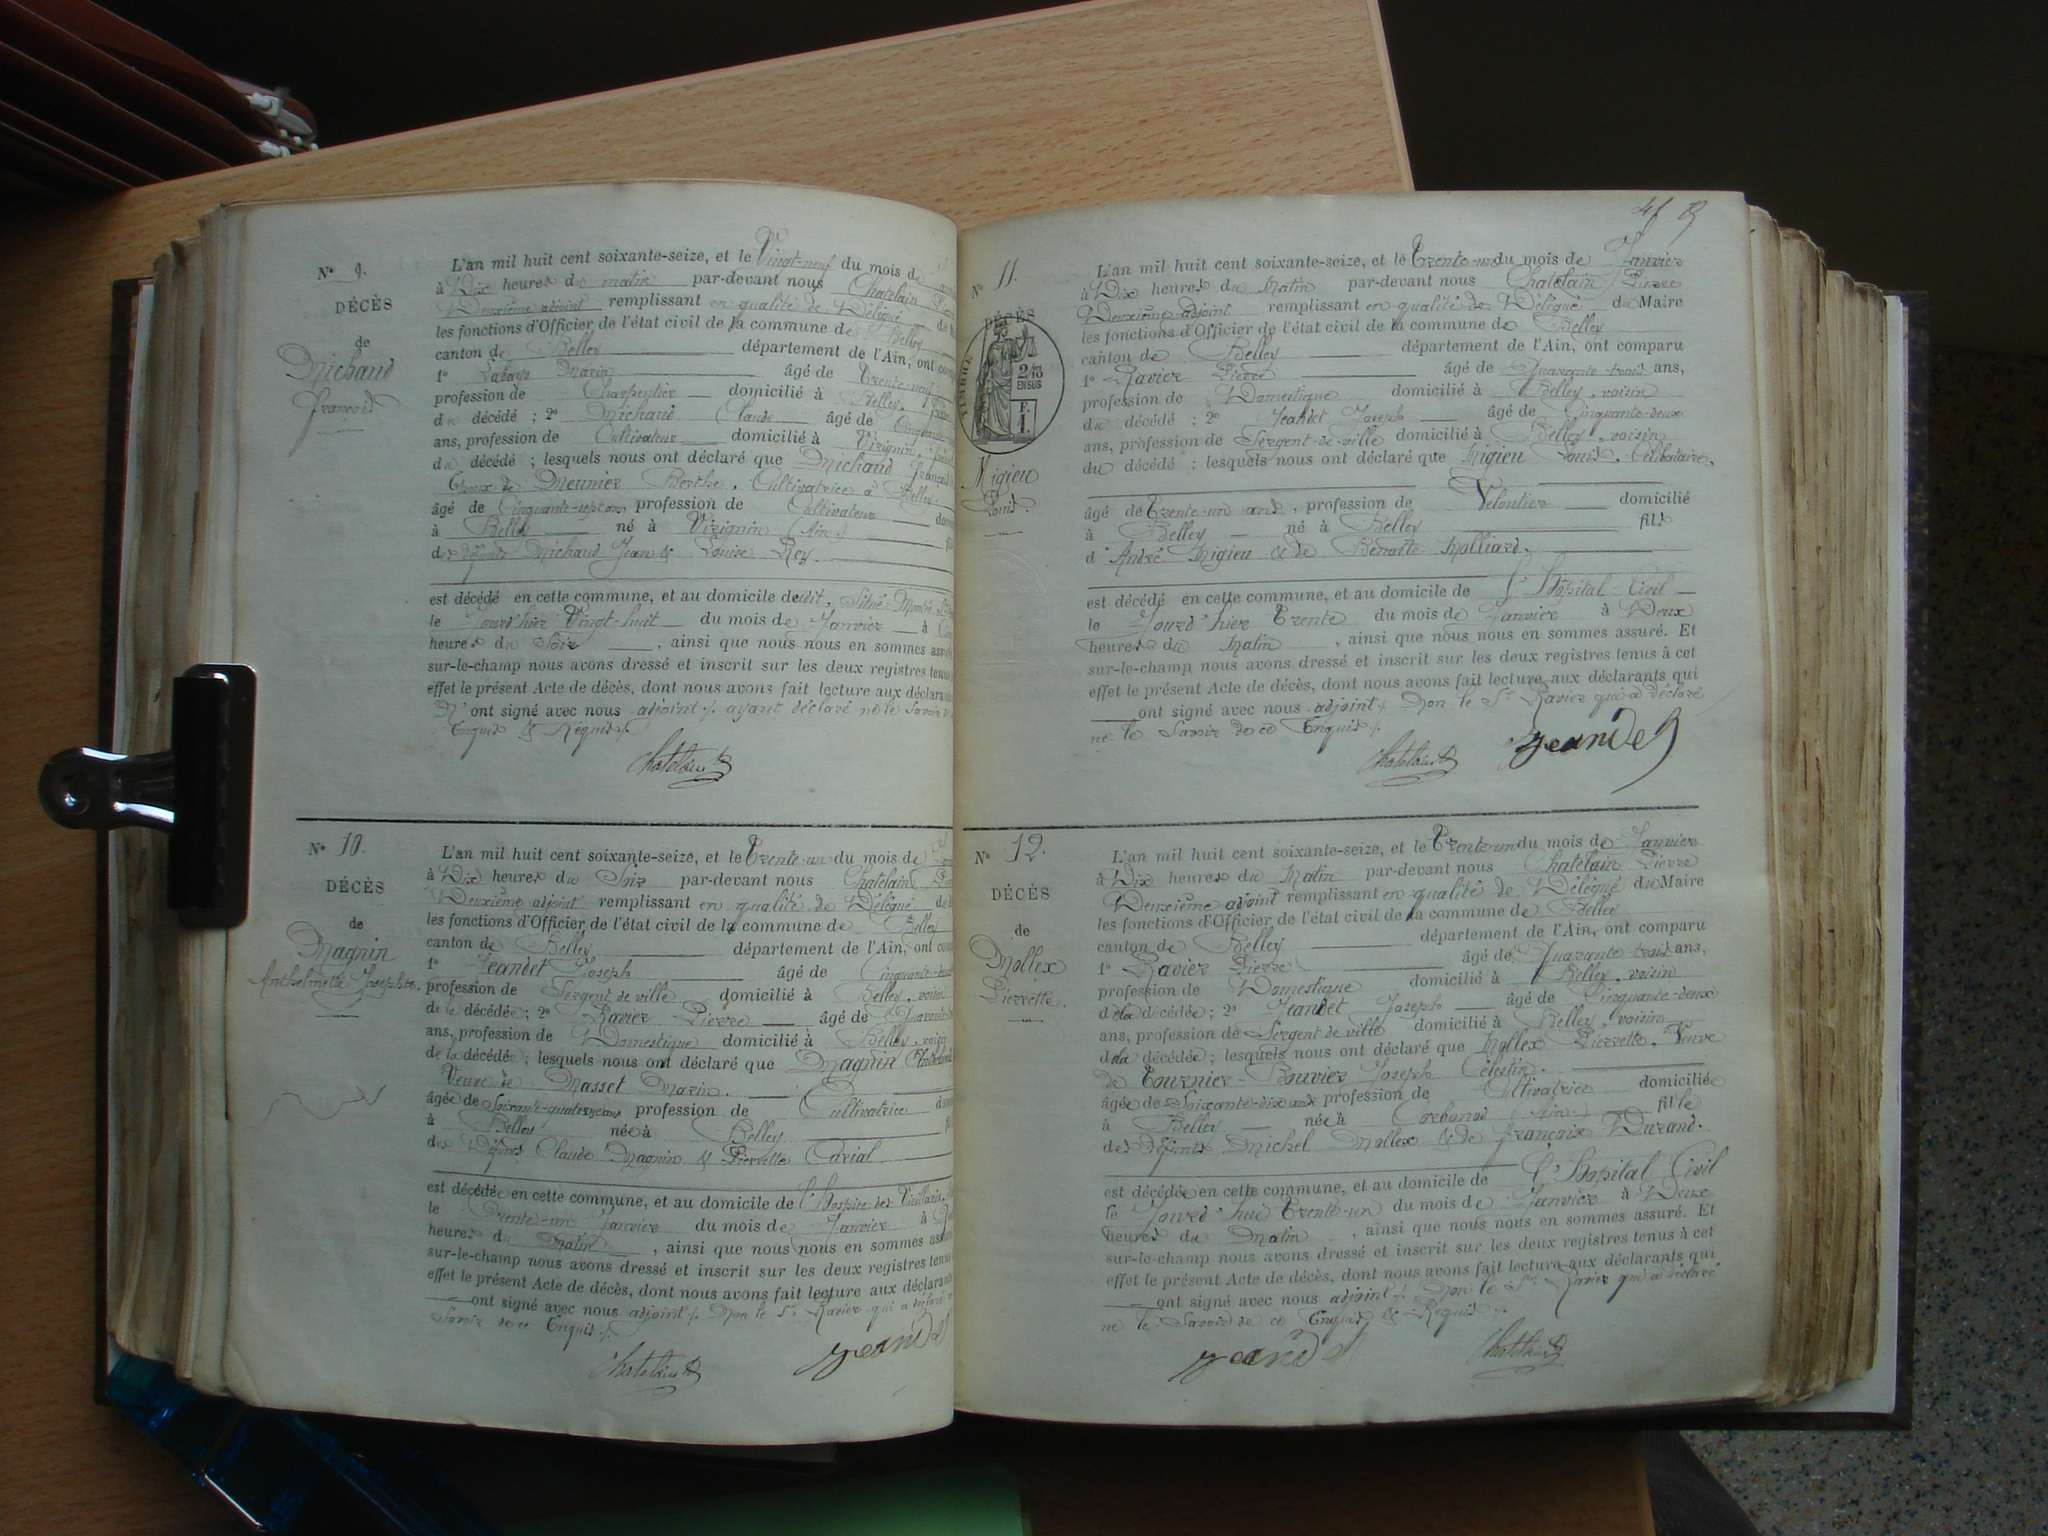 N° 9.
DÉCÈS
de
Michaud
François
L'an mil huit cent soixante-seize, et le Vingt-neuf du mois de
à Dix heures du matin par-devant nous Chatelain
Deuxième adjoint remplissant en qualité de Délégué du
les fonctions d'Officier de l'état civil de la commune de Belley
canton de Belley département de l'Ain, ont
1° Marin âgé de Trente-neuf
profession de Charpentier domicilié à Belley,
du décédé ; 2° Michaud Claude âgé de
ans, profession de Cultivateur domicilié à Virignin,
du décédé ; lesquels nous ont déclaré que Michaud François
Époux de Meunier Berthe, Cultivatrice à Belley.
âgé de Cinquante-sept ans, profession de Cultivateur
à Belley né à Virignin (Ain)
des défunts Michaud Jean & Louise Rey
est décédé en cette commune, et au domicile
le Jourd'hier Vingt-huit du mois de Janvier à
heures du Soir , ainsi que nous nous en sommes
sur-le-champ nous avons dressé et inscrit sur les deux registres tenus
effet le présent Acte de décès, dont nous avons fait lecture aux
N' ont signé avec nous adjoint ./. ayant déclaré ne le Savoir
Enquis & Requis ./.
Chatelain
N° 10.
DÉCÈS
de
Magnin
Anthelmette Josephte.
L'an mil huit cent soixante-seize, et le Trente-un du mois de
à Dix heures du Soir par-devant nous Chatelain
Deuxième adjoint remplissant en qualité de Délégué
les fonctions d'Officier de l'état civil de la commune de Belley
canton de Belley département de l'Ain, ont
1° Jeandet Joseph âgé de
profession de Sergent de ville domicilié à Belley, voisin
de la décédée ; 2° Ravier Pierre âgé de
ans, profession de Domestique domicilié à Belley, voisin
de la décédée ; lesquels nous ont déclaré que Magnin
Veuve de Masset Marin.
âgée de Soixante-quatorze ans profession de Cultivatrice
à Belley née à Belley
des Défunts Claude Magnin & Pierrette Carial
est décédée en cette commune, et au domicile de l'Hospice des Vieillards
le Trente-un Janvier du mois de Janvier à
heures du Matin , ainsi que nous nous en sommes
sur-le-champ nous avons dressé et inscrit sur les deux registres tenus
effet le présent Acte de décès, dont nous avons fait lecture aux
ont signé avec nous adjoint ./. Non le Sr Ravier qui a déclaré
Savoir de ce Enquis ./.
Chatelain Jeandet
N° 11.
DÉCÈS
TIMBRE
2/10
EN SUS
F.
1.
Migieu
Louis.
L'an mil huit cent soixante-seize, et le Trente-un du mois de Janvier
à Dix heures du Matin par-devant nous Chatelain Pierre
Deuxième adjoint remplissant en qualité de Délégué du Maire
les fonctions d'Officier de l'état civil de la commune de Belley
canton de Belley département de l'Ain, ont comparu
1° Ravier Pierre âgé de Quarante-trois ans,
profession de Domestique domicilié à Belley, voisin
du décédé ; 2° Jeandet Joseph âgé de Cinquante-deux
ans, profession de Sergent-de-ville domicilié à Belley, voisin
du décédé ; lesquels nous ont déclaré que Migieu Louis, Célibataire,
âgé de Trente-un ans, profession de Veloutier domicilié
à Belley né à Belley fils
d'André Migieu & de Benoîte Molliard.
est décédé en cette commune, et au domicile de l'Hôpital-Civil
le Jourd'hier Trente du mois de Janvier à Deux
heures du Matin , ainsi que nous nous en sommes assuré. Et
sur-le-champ nous avons dressé et inscrit sur les deux registres tenus à cet
effet le présent Acte de décès, dont nous avons fait lecture aux déclarants qui
ont signé avec nous adjoint ./. Non le Sr Ravier qui a déclaré
ne le Savoir de ce Enquis ./.
Chatelain Jeandet
N° 12.
DÉCÈS
de
Mollex
Pierrette.
L'an mil huit cent soixante-seize, et le Trente-un du mois de Janvier
à Dix heures du Matin par-devant nous Chatelain Pierre
Deuxième adjoint remplissant en qualité de Délégué du Maire
les fonctions d'Officier de l'état civil de la commune de Belley
canton de Belley département de l'Ain, ont comparu
1° Ravier Pierre âgé de Quarante-trois ans,
profession de Domestique domicilié à Belley, voisin
de la décédée ; 2° Jeandet Joseph âgé de Cinquante-deux
ans, profession de Sergent de ville domicilié à Belley, voisin
de la décédée ; lesquels nous ont déclaré que Mollex Pierrette, Veuve
de Tournier-Bouvier Joseph Célestin.
âgée de Soixante-dix ans profession de Cultivatrice domiciliée
à Belley née à (Ain) fille
des défunts Michel Mollex & de Françoise Durand.
est décédée en cette commune, et au domicile de l'Hôpital Civil
le Jourd'hui Trente-un du mois de Janvier à Deux
heures du Matin , ainsi que nous nous en sommes assuré. Et
sur-le-champ nous avons dressé et inscrit sur les deux registres tenus à cet
effet le présent Acte de décès, dont nous avons fait lecture aux déclarants qui
ont signé avec nous adjoint ./. Non le Sr Ravier qui a déclaré
ne le Savoir de ce Enquis & Requis ./.
Jeandet Chatelain